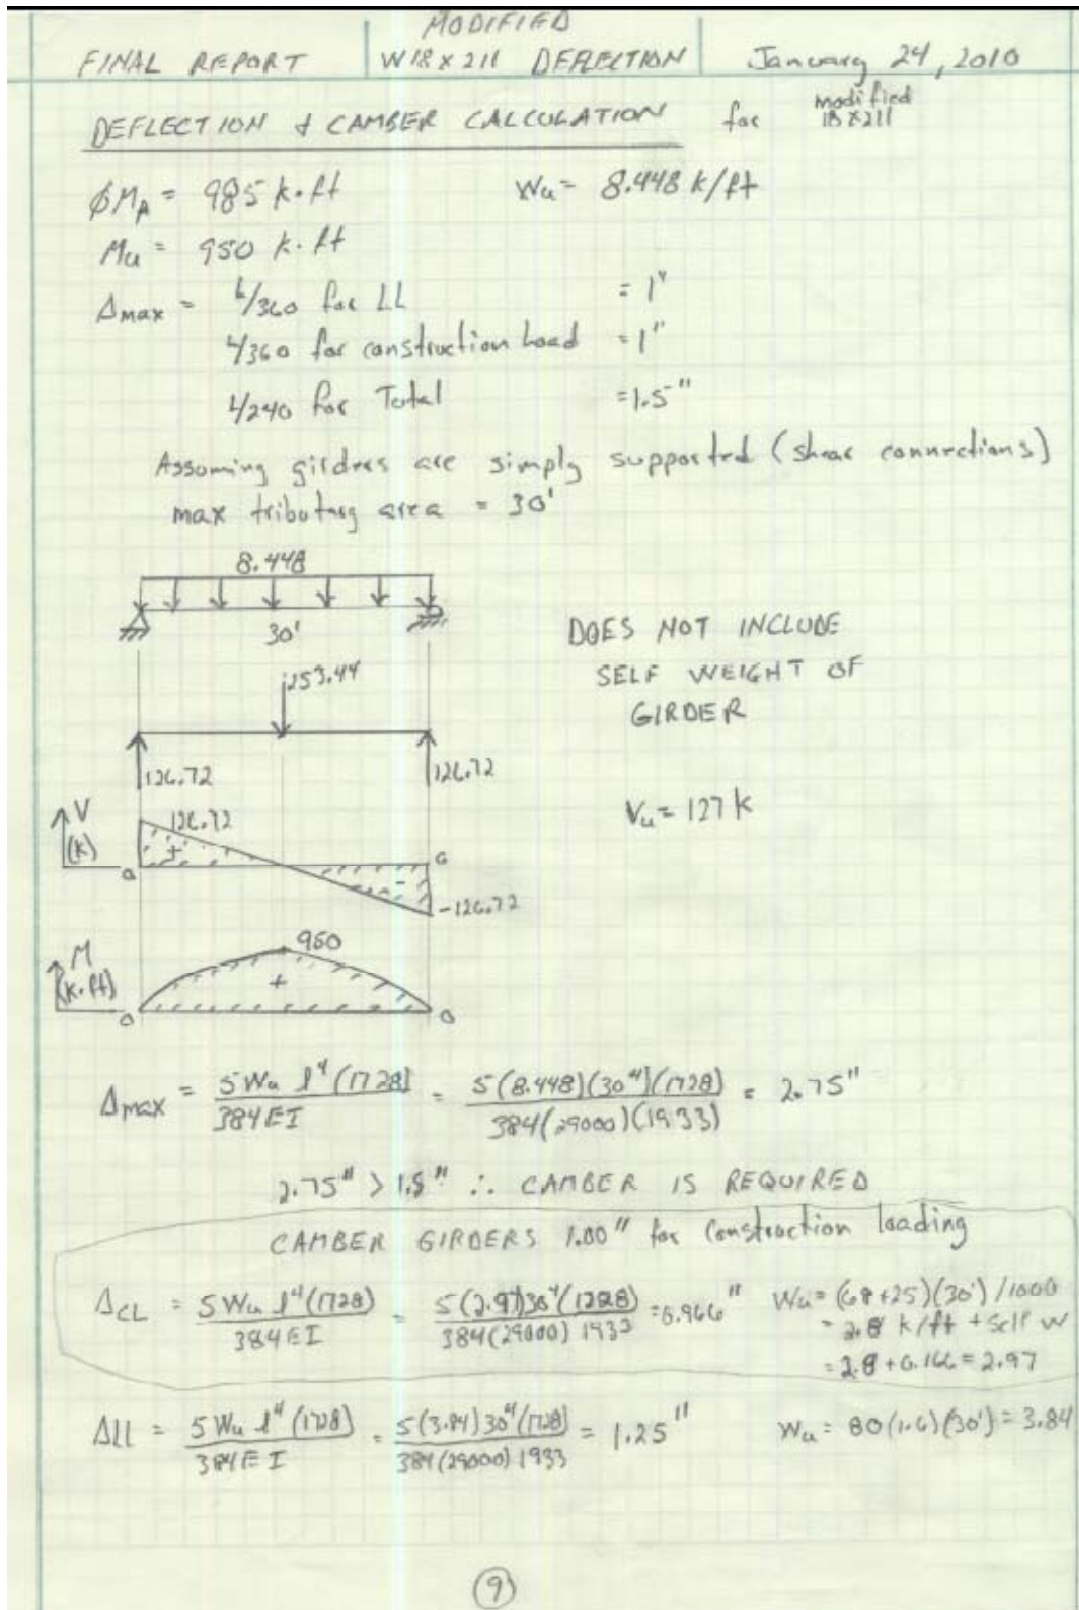 MODIFIED
FINAL REPORT W18x211 DEFLECTION January 24, 2010
DEFLECTION & CAMBER CALCULATION for modified 18x211
ϕMp = 985 k·ft Wu = 8.448 k/ft
Mu = 950 k·ft
Δmax = L/360 for LL = 1"
L/360 for construction Load = 1"
L/240 for Total = 1.5"
Assuming girders are simply supported (shear connections)
max tributary area = 30'
8.448
30'
DOES NOT INCLUDE
SELF WEIGHT OF
GIRDER
253.44
126.72 126.72
Vu = 127 k
V
(k)
126.72
+
0 0
-
-126.72
M
(k·ft)
950
+
0 0
Δmax = 5Wu l⁴(1728) / 384EI = 5(8.448)(30⁴)(1728) / 384(29000)(1933) = 2.75"
2.75" > 1.5" ∴ CAMBER IS REQUIRED
CAMBER GIRDERS 1.00" for Construction loading
ΔCL = 5Wu l⁴(1728) / 384EI = 5(2.97)30⁴(1728) / 384(29000) 1933 = 0.966" Wu = (68+25)(30')/1000
= 2.8 k/ft + self w
= 2.8 + 0.166 = 2.97
ΔLL = 5Wu l⁴(1728) / 384EI = 5(3.84)30⁴(1728) / 384(29000) 1933 = 1.25" Wu = 80(1.6)(30') = 3.84
9